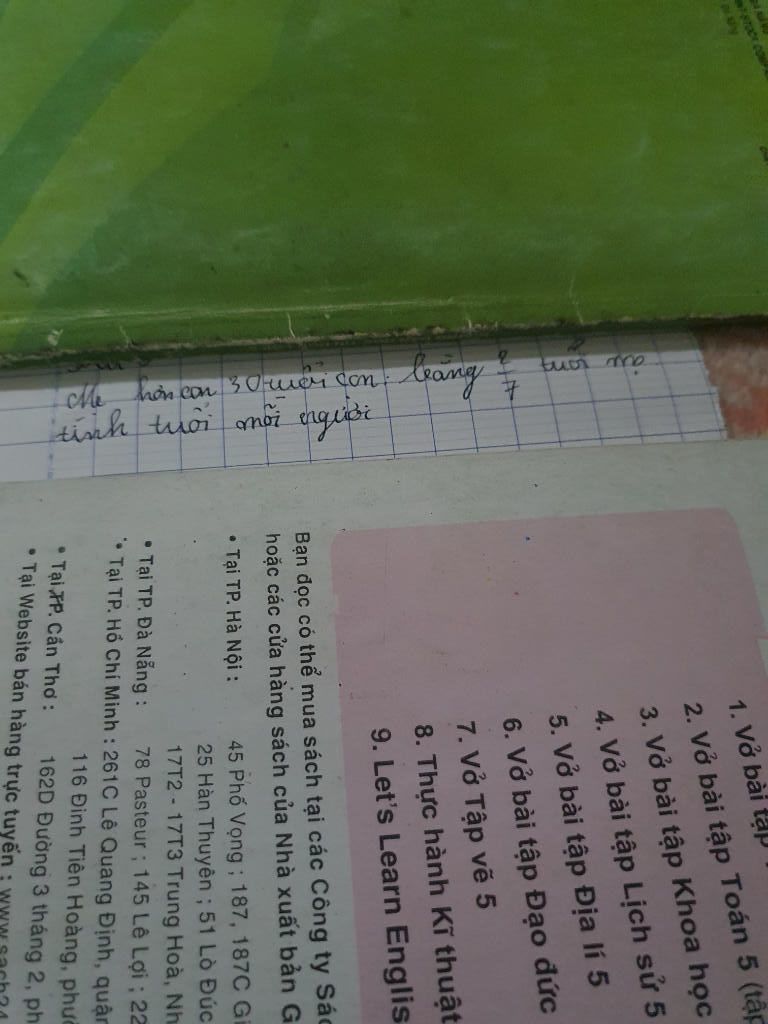 Mẹ hơn con 30 tuổi con bằng 2/7 tuổi mẹ
tính tuổi mỗi người
1. Vở bài tập
2. Vở bài tập Toán 5 (tập
3. Vở bài tập Khoa học
4. Vở bài tập Lịch sử 5
5. Vở bài tập Địa lí 5
6. Vở bài tập Đạo đức
7. Vở Tập vẽ 5
8. Thực hành Kĩ thuật
9. Let's Learn Englis
Bạn đọc có thể mua sách tại các Công ty Sác
hoặc các cửa hàng sách của Nhà xuất bản G
• Tại TP. Hà Nội : 45 Phố Vọng ; 187, 187C Gi
25 Hàn Thuyên ; 51 Lò Đúc
17T2 - 17T3 Trung Hoà, Nh
• Tại TP. Đà Nẵng : 78 Pasteur ; 145 Lê Lợi ; 22
• Tại TP. Hồ Chí Minh : 261C Lê Quang Định, quận
116 Đinh Tiên Hoàng, phườ
• Tại TP. Cần Thơ : 162D Đường 3 tháng 2, ph
• Tại Website bán hàng trực tuyến : www.sach24